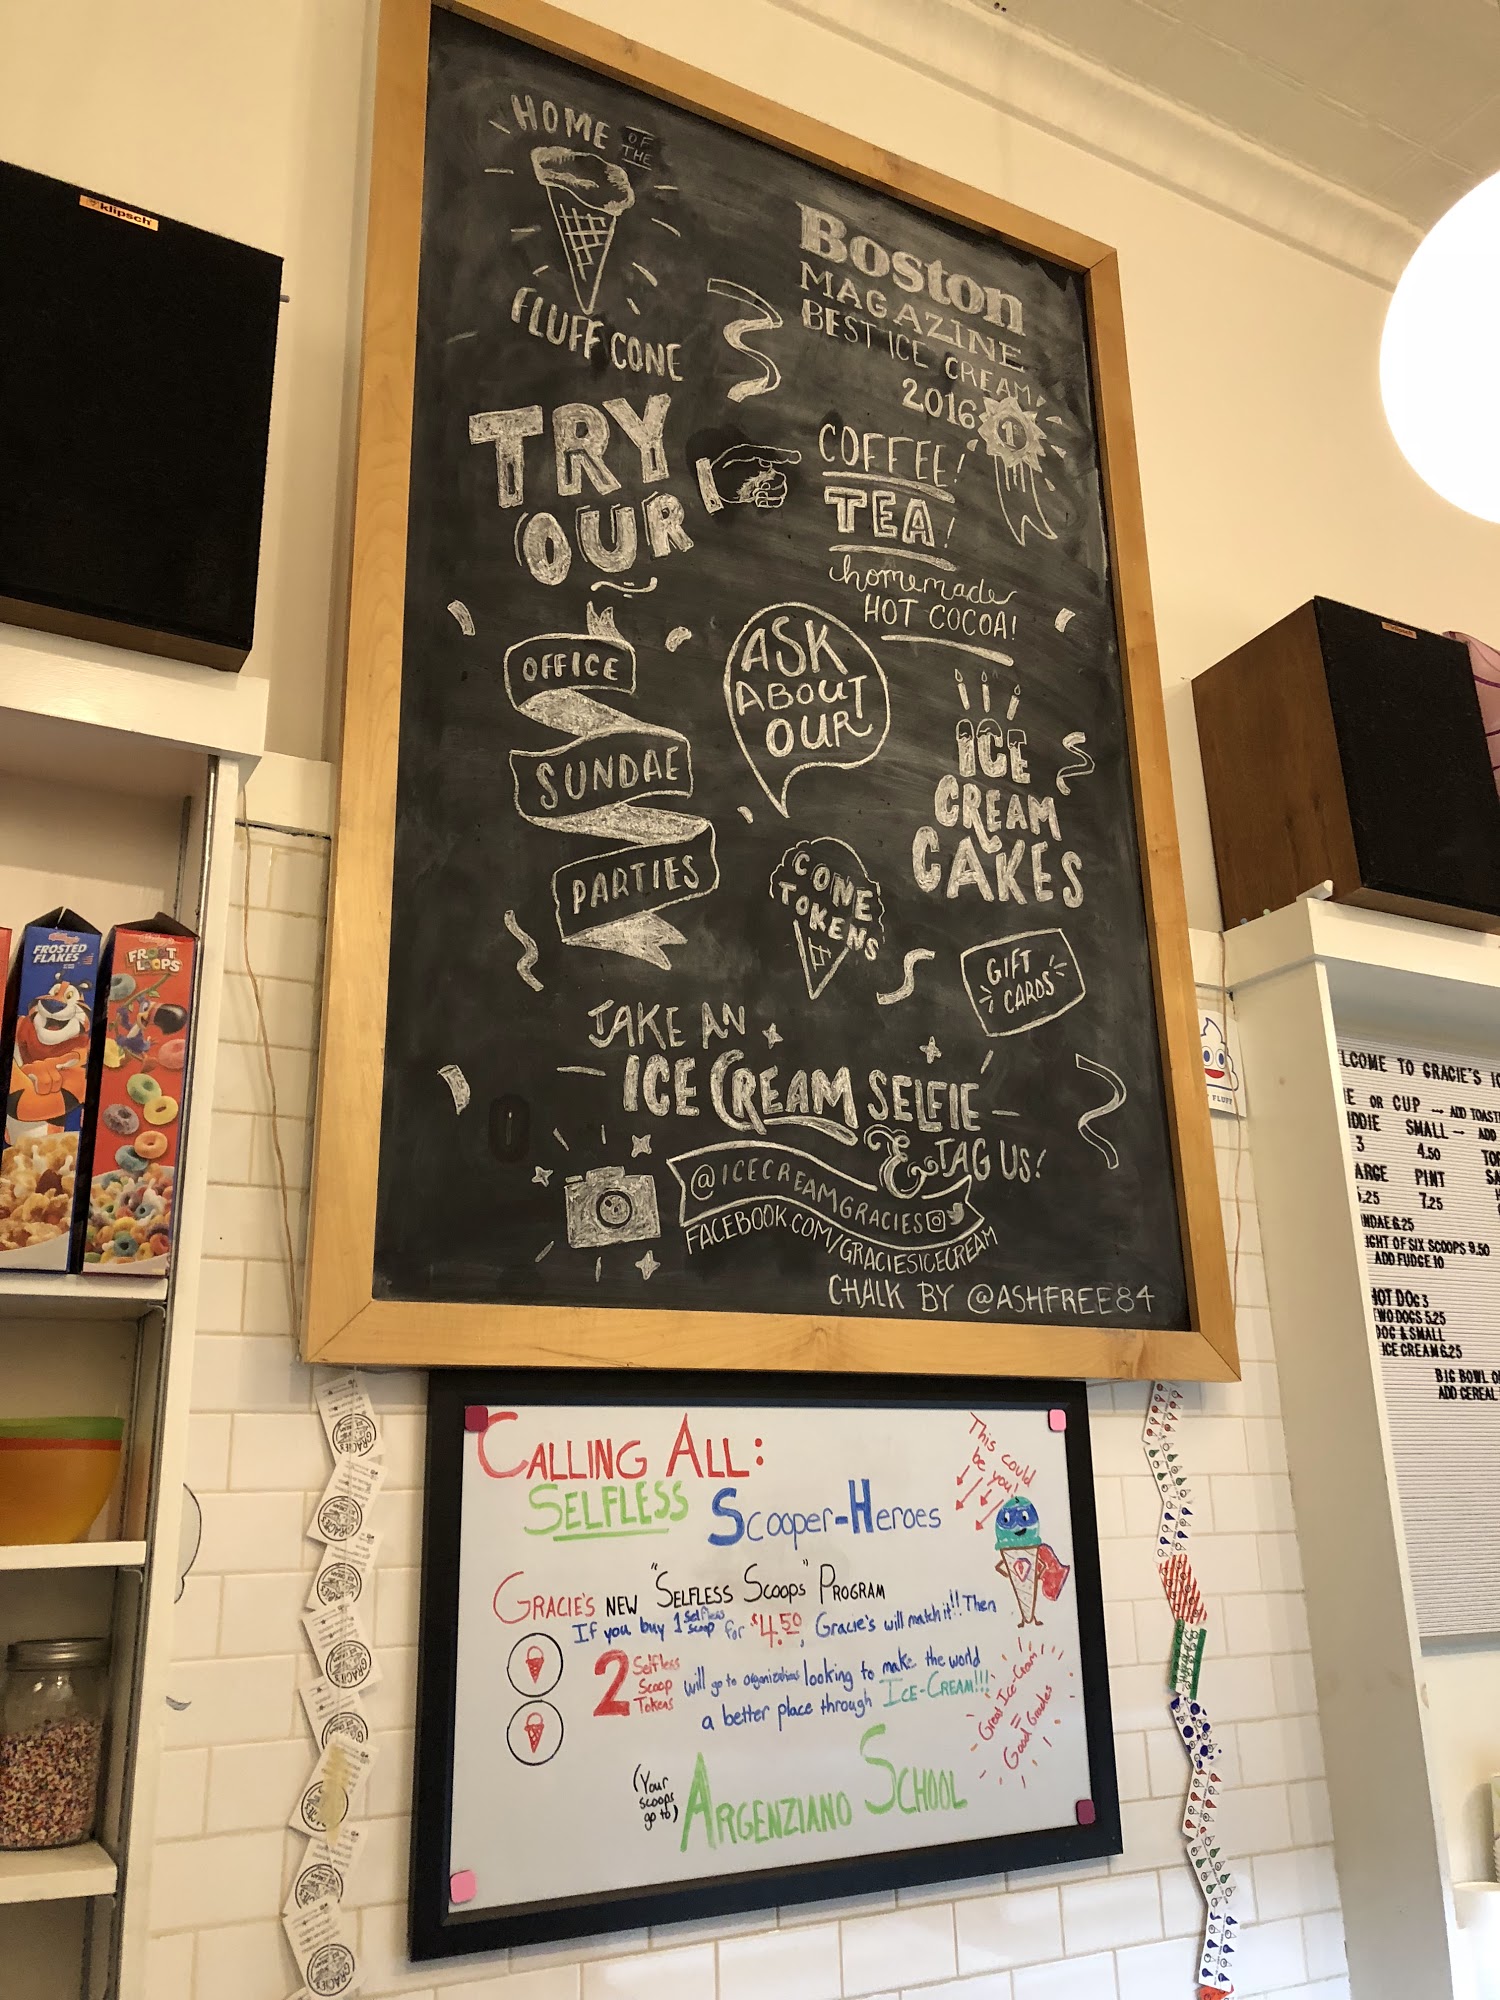 klipsch
HOME OF THE
FLUFF CONE
BOSTON
MAGAZINE
BEST ICE CREAM
2016
1
TRY
OUR
COFFEE!
TEA!
homemade
HOT COCOA!
OFFICE
SUNDAE
PARTIES
ASK
ABOUT
OUR
ICE
CREAM
CAKES
CONE
TOKENS
GIFT
CARDS
TAKE AN
ICE CREAM SELFIE
& TAG US!
@ICECREAMGRACIES
FACEBOOK.COM/GRACIESICECREAM
CHALK BY @ASHFREE84
FROSTED
FLAKES
FROOT
LOOPS
FLUFF
LCOME TO GRACIE'S
OR CUP
ADD
DDIE SMALL
3 4.50
ARGE PINT
.25 7.25
NDAE 6.25
IGHT OF SIX SCOOPS 9.50
ADD FUDGE 10
HOT DOG 3
TWO DOGS 5.25
DOG & SMALL
ICE CREAM 6.25
BIG BOWL
ADD CEREAL
CALLING ALL:
SELFLESS SCOOPER-HEROES
This could
be you!
GRACIE'S NEW "SELFLESS SCOOPS" PROGRAM
If you buy 1 selfless scoop for $4.50, Gracie's will match it!! Then
2 Selfless Scoop Tokens will go to organizations looking to make the world
a better place through ICE-CREAM!!!
Great Ice-Cream
=
Good Grades
(Your
scoops
go to)
ARGENZIANO SCHOOL
GRACIE'S